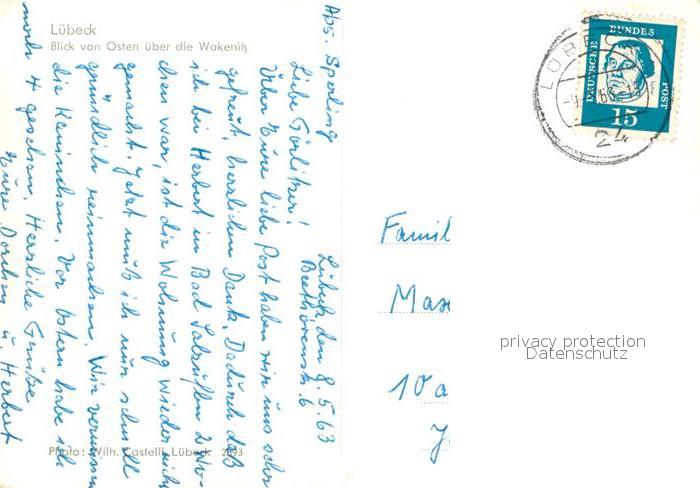 Lübeck
Blick von Osten über die Wakenitz
Abs. Sperling
Lübeck, den 8.5.63
Beethovenstr. 6
Liebe Görlitzer!
Über Eure liebe Post haben wir uns sehr
gefreut, herzlichen Dank. Dadurch daß
ich bei Herbert in Bad Salzuflen 2 Wo-
chen war, ist die Wohnung wieder nicht
gemacht. Jetzt muß ich nun schnell
gründlich reinmachen. Wir vermissen
die Kaninchen. Vor Ostern habe ich
noch 4 gesehen. Herzliche Grüße
Eure Dorchen u. Herbert
Photo: Wilh. Castelli, Lübeck 2893
LÜBEC
24
DEUTSCHE BUNDES POST
15
Famil
Max
10a
privacy protection
Datenschutz